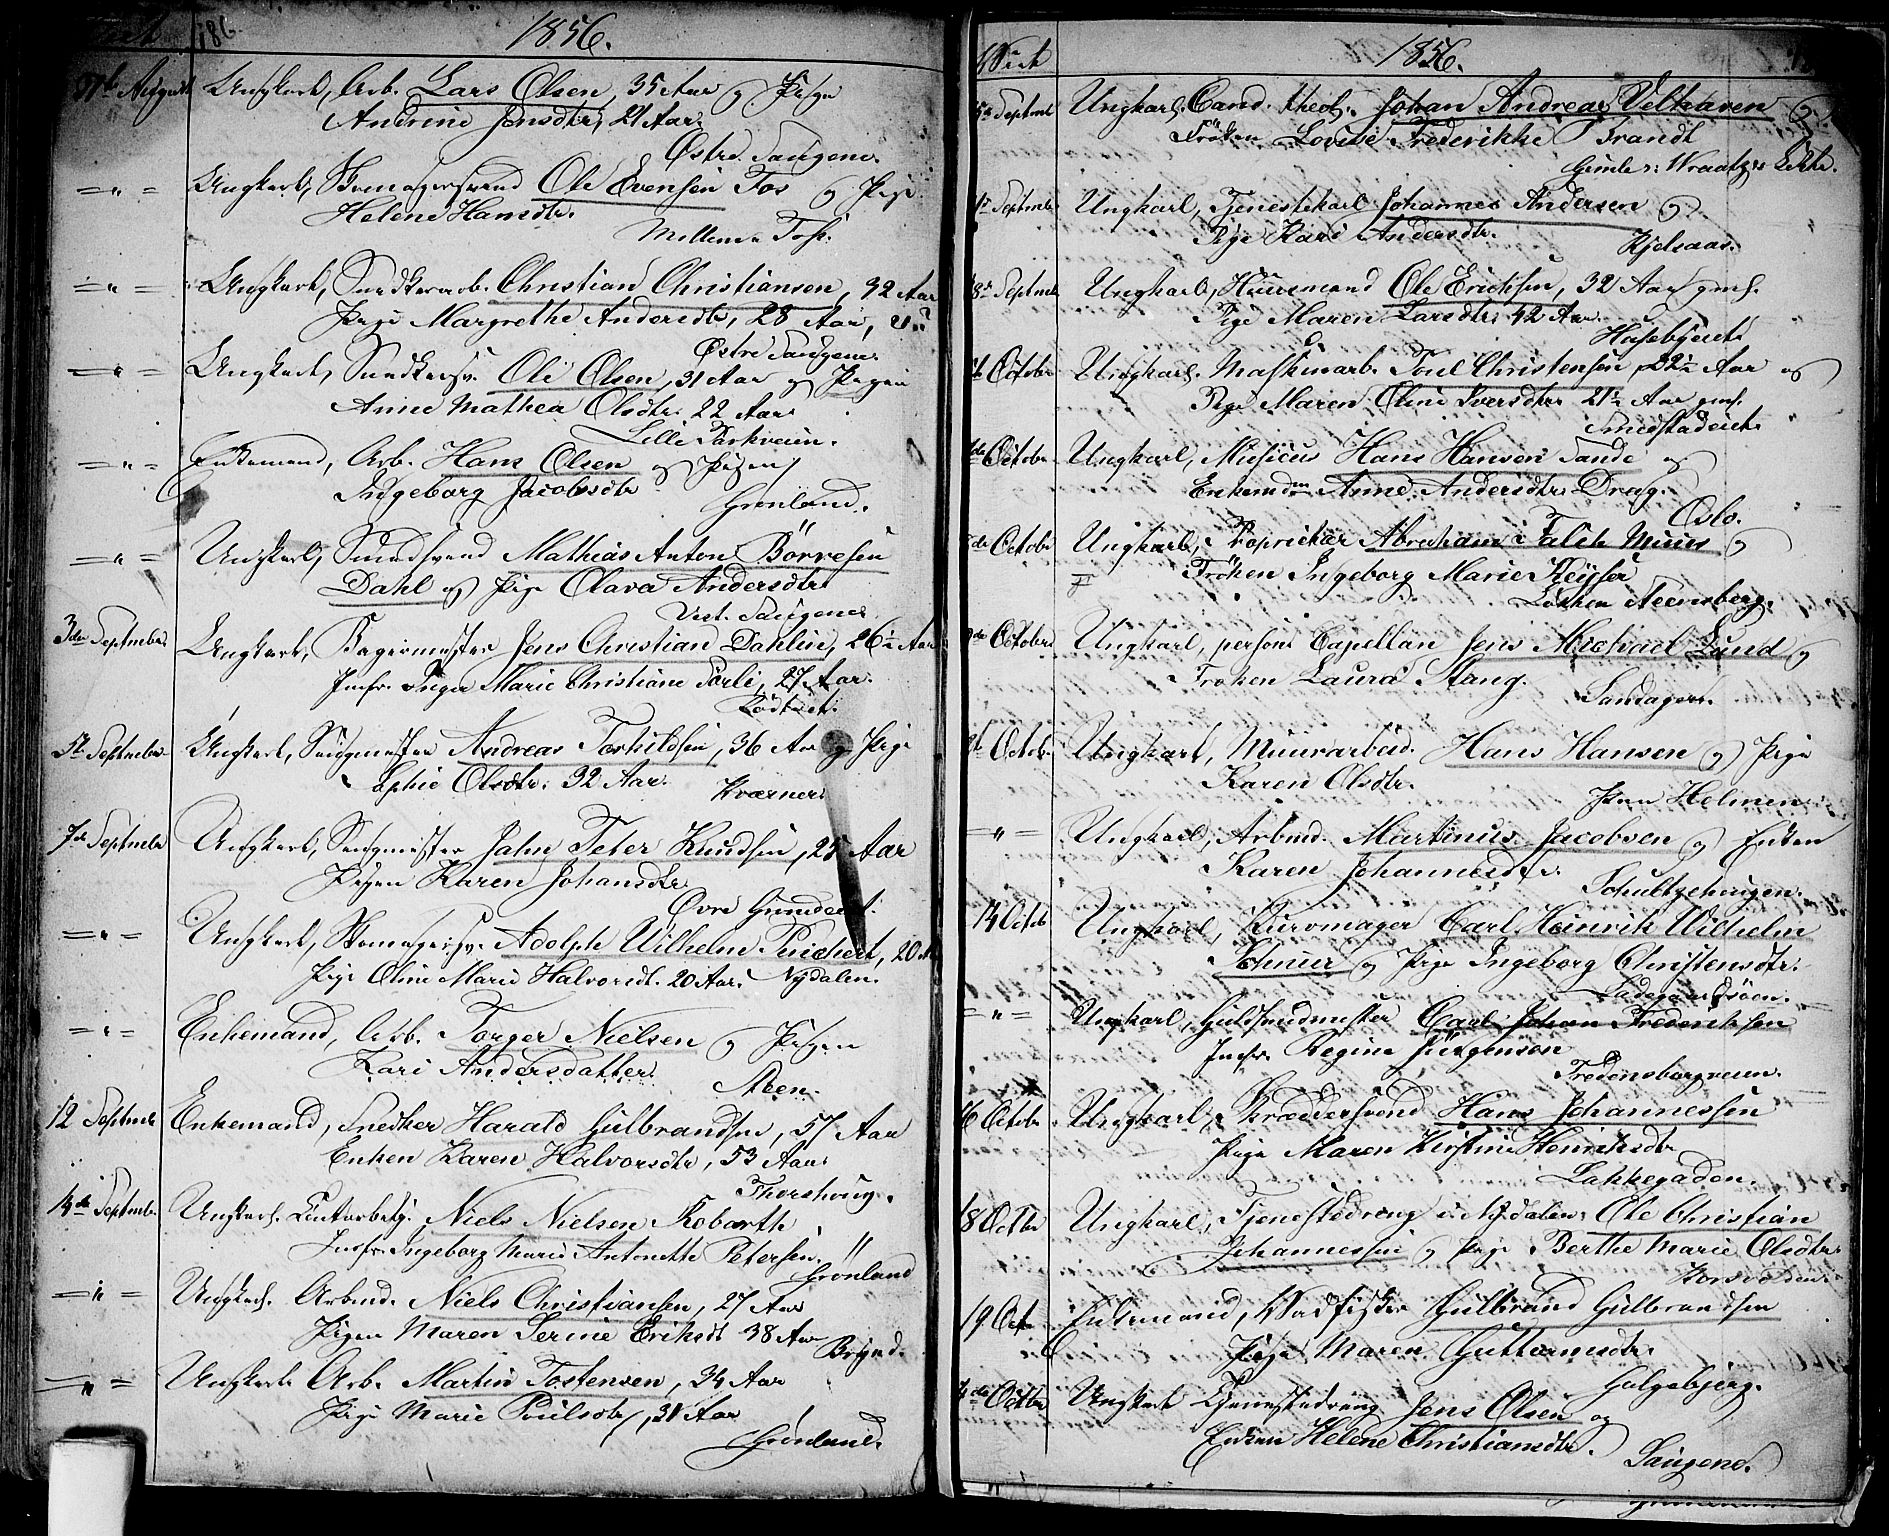 186.
1856.
31te August Ungkarl, Arb. Lars Olsen, 35 Aar og Pige
Andrine Jensdtr, 21 Aar.
Østre Saugene.
— " — Ungkarl, Skomagersvend Ole Evensen Tos og Pige
Helene Hansdtr.
Mellem Tøs.
— " — Ungkarl, Snedkerarb. Christian Christiansen, 32 Aar
Pige Margrethe Andersdtr, 28 Aar,
Østre Saugene.
— " — Ungkarl, Snedkersv. Ole Olsen, 31 Aar og Pigen
Anne Mathea Olsdtr. 22 Aar.
Lille Parkveien.
— " — Enkemand, Arb. Hans Olsen og Pigen
Ingeborg Jacobsdtr
Grønland.
— " — Ungkarl, Smedsvend Mathias Anton Börresen
Dahl og Pige Olava Andersdtr
Vest. Saugene
3die September Ungkarl, Bagermester Jens Christian Dahlin, 26½ Aar
Jmfr. Inger Marie Christiane Sørli, 27 Aar.
5te September Ungkarl, Saugmester Andreas Torkildsen, 36 Aar og Pige
Sophie Olsdtr. 32 Aar.
Kværner
7de Septembr Ungkarl, Saugmester John Peter Knudsen, 25 Aar
Pigen Karen Johansdtr
Øvre
— " — Ungkarl, Skomagersv. Adolph Wilhelm Puichert, 20 A
Pige Oline Marie Halvorsdt. 20 Aar. Nydalen.
— " — Enkemand, Arb. Torger Nielsen og Pigen
Kari Andersdatter.
Steen.
12 Septembr Enkemand, Snedker Harald Gulbrandsen, 57 Aar
Enken Karen Halvorsdtr, 53 Aar
Thorshoug.
14de Septembr. Ungkarl. Contorbetj. Niels Nielsen Kobarth
Jmfr. Ingeborg Marie Antonette Petersen.
Grønland
— " — Ungkarl. Arbmd. Niels Christiansen, 27 Aar
Pigen Maren Serine Eriksdt 38 Aar
Bryned.
— " — Ungkarl. Arb. Martin Tostensen, 34 Aar
Pige Marie Poulsdtr, 31 Aar
Grönland.
Viet
1856.
Septmbr Ungkarl. Cand. theol. Johan Andreas Velhaven og
Fröken Lovise Frederikke Brandt
Gimle i Wraatzes Løkke.
Septmbr Ungkarl, Tjenestekarl Johannes Andersen og
Pige Kari Andersdtr.
Kjelsaas.
Septmbr Ungkarl, Huusmand Ole Ericksen, 32 Aar gml.
Pige Maren Larsdtr. 42 Aar.
Husebyeiet
October Ungkarl. Maskinarb. Poul Christensen 22½ Aar og
Pige Maren Oline Iversdtr 21½ Aar gml.
Smedstadeiet
October Ungkarl, Musicus Hans Hansen Sande og
Enkemdm Anne Andersdtr. Drag.
Oslo.
October Ungkarl, Proprietær Abraham Falck Muus og
Fröken Ingeborg Marie Keyser
Løkken Steensberg.
October Ungkarl, person: Capellan Jens Michael Lund og
Frøken Laura Stang.
Sandager.
Octobr Ungkarl, Muurarbeid. Hans Hansen og Pige
Karen Olsdtr.
Paa Helmen
— " — Ungkarl, Arbmd. Martinus Jacobsen og Enken
Karen Johannesdtr.
Schultzehougen.
14 Octob Ungkarl, Kurvmager Carl Heinrik Wilhelm
Schnur og Pige Ingeborg Christensdtr.
Ladegaardsöen.
— " — Ungkarl, Guldsmedmester Carl Johan Frederiksen
Jmfr. Regine Jürgensen
Fredensborgveien.
16 October Ungkarl, Skræddersvend Hans Johannessen
Pige Maren Kirstine Henriksdtr
Lakkegaden.
18 Octbr Ungkarl, Tjenestedreng i Nydalen, Ole Christian
Johannessen og Pige Berthe Marie Olsdtr.
Korsvolden.
19 Oct Enkemand, Gulbrand Gulbrandsen
Pige Maren Guttormsdtr.
Galgebjerg.
Octbr Ungkarl Tjenestedreng Jens Olsen og
Enken Helene Christiansdtr.
Saugene.